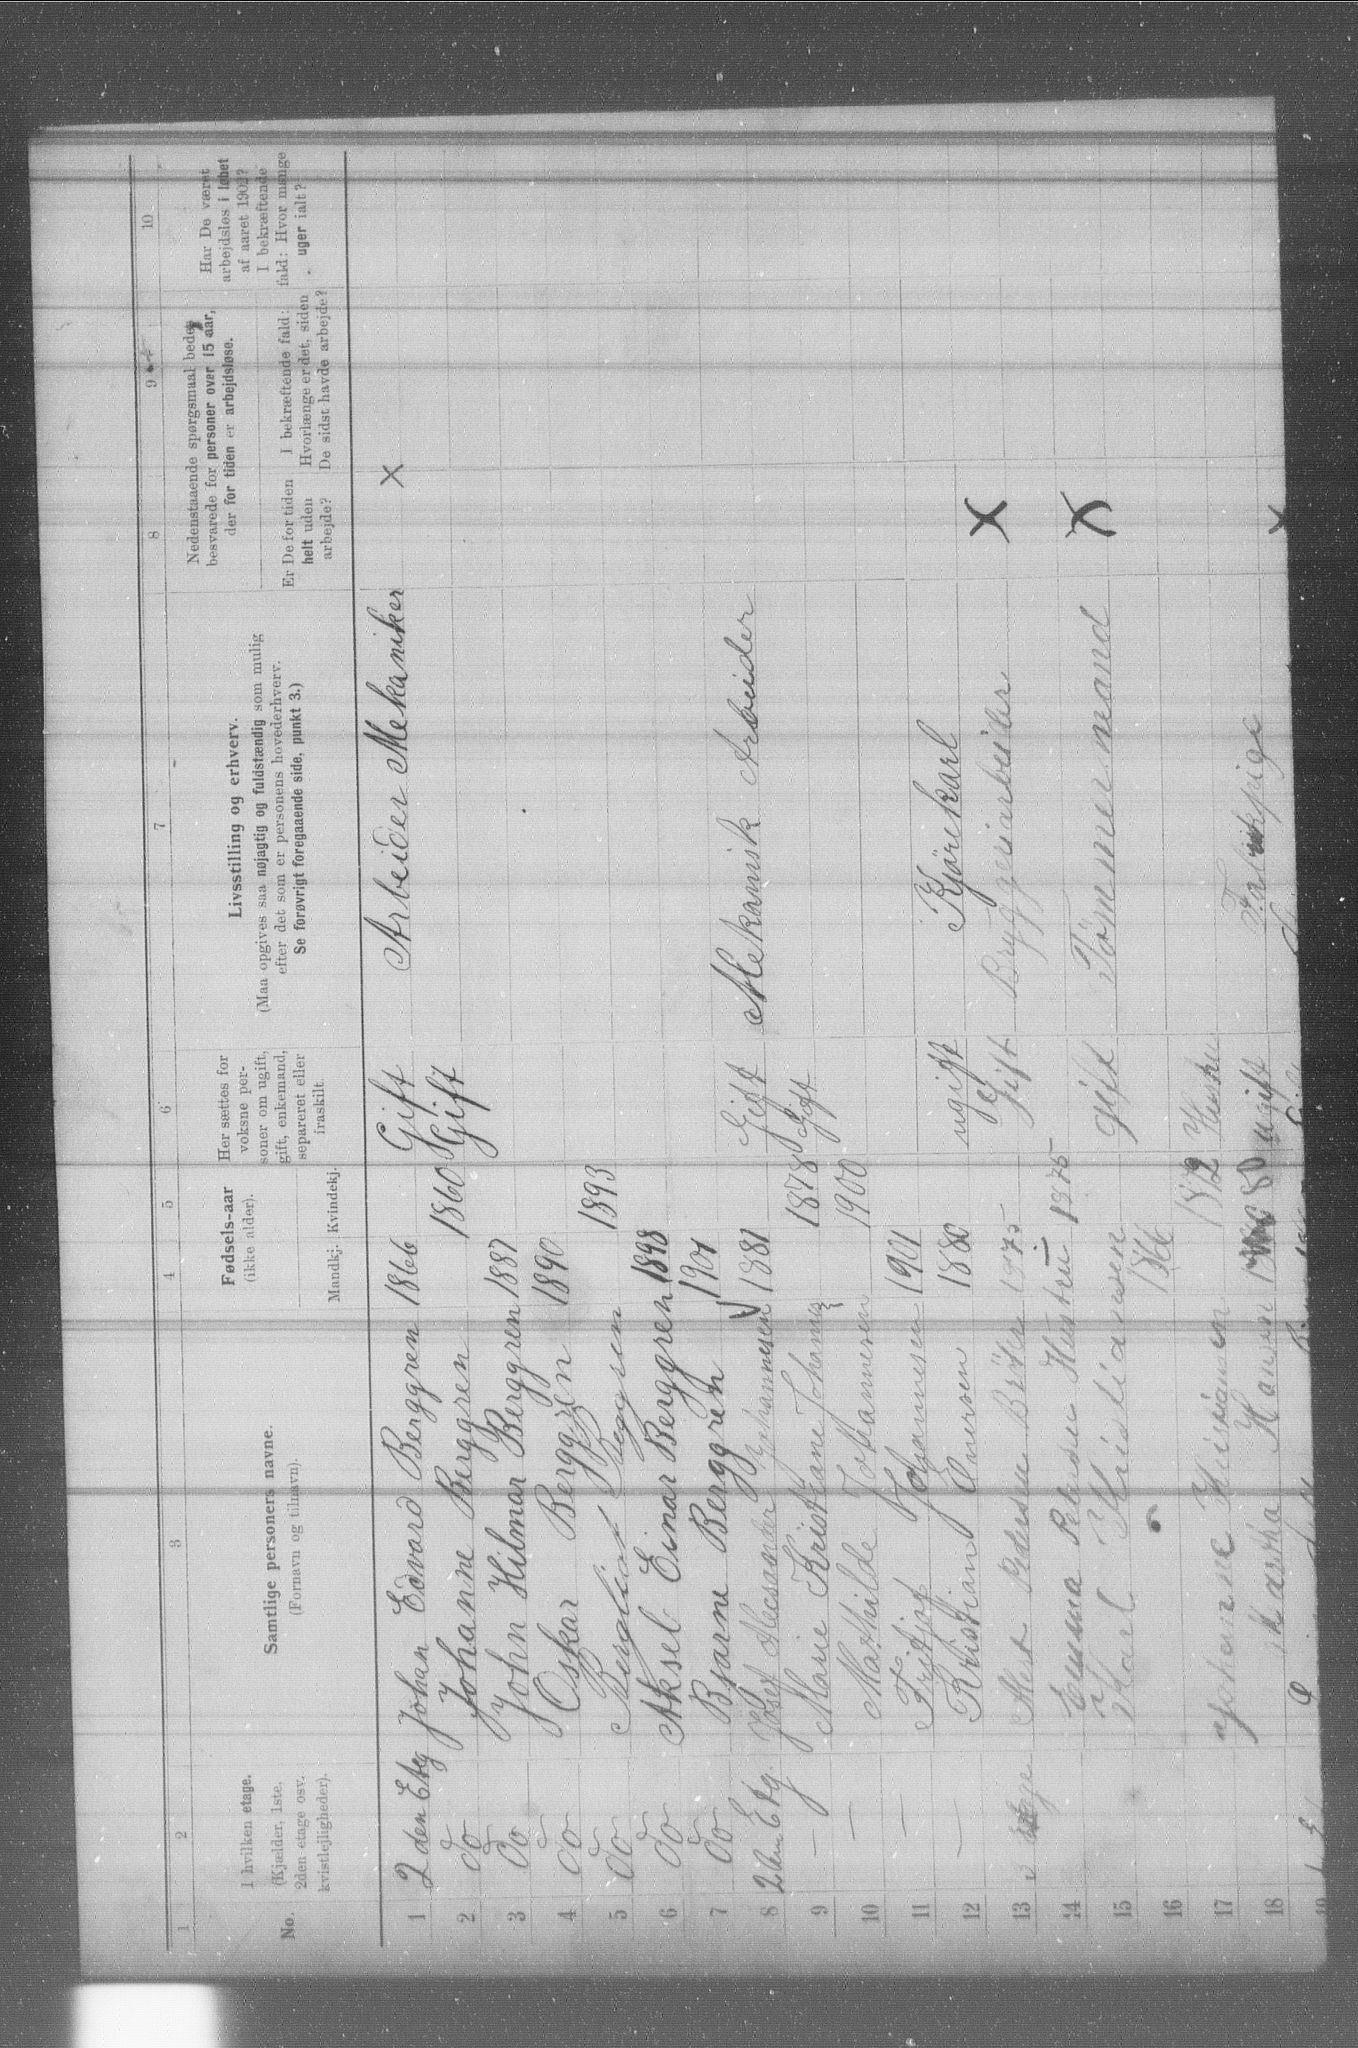 1 2 3 4 5 6 7 8 9 10
No.
I hvilken etage.
(Kjælder, 1ste,
2den etage osv.
kvistleiligheder).
Samtlige personers navne.
(Fornavn og tilnavn).
Fødsels-aar
(ikke alder).
Mandkj. Kvindekj.
Her sættes for
voksne per-
soner om ugift,
gift, enkemand,
separeret eller
fraskilt.
Livsstilling og erhverv.
(Maa opgives saa nøjagtig og fuldstændig som mulig
efter det som er personens hovederhverv.
Se forøvrigt foregaaende side, punkt 3.)
Nedenstaaende spørgsmaal bedes
besvarede for personer over 15 aar,
der for tiden er arbejdsløse.
Er De for tiden
helt uden
arbejde?
I bekræftende fald:
Hvorlænge er det, siden
De sidst havde arbejde?
Har De været
arbejdsløs i løbet
af aaret 1902?
I bekræftende
fald: Hvor mange
uger ialt?
1 2den Etg Johan Edvard Berggren 1866 Gift Arbeider Mekaniker x
2 do Johanne Berggren 1860 Gift
3 do John Hilmar Berggren 1887
4 do Oskar Berggren 1890
5 do Bergliot Berggren 1893
6 do Aksel Einar Berggren 1898
7 do Bjarne Berggren 1901
8 2den Etg. Josef Alecsander Johannesen 1881 Gift Mekanisk Arbeider
9 — Marie Kristiane Johannes 1878 Gift
10 — Mathilde Johannesen 1900
11 — Fritjof Johannesen 1901
12 — Kristian Amersen 1880 ugift Kjørekarl x
13 3 Pedersen 1875 Gift Bryggeriarbeider
14 Emma Pedersen Hustru 1875 x
15 Karl Kristiansen gift Tömmermand
16 1866
17 Johanne Kristiansen 1872 Hustru
18 Hansen 80 ugift Fabrikpige x
19